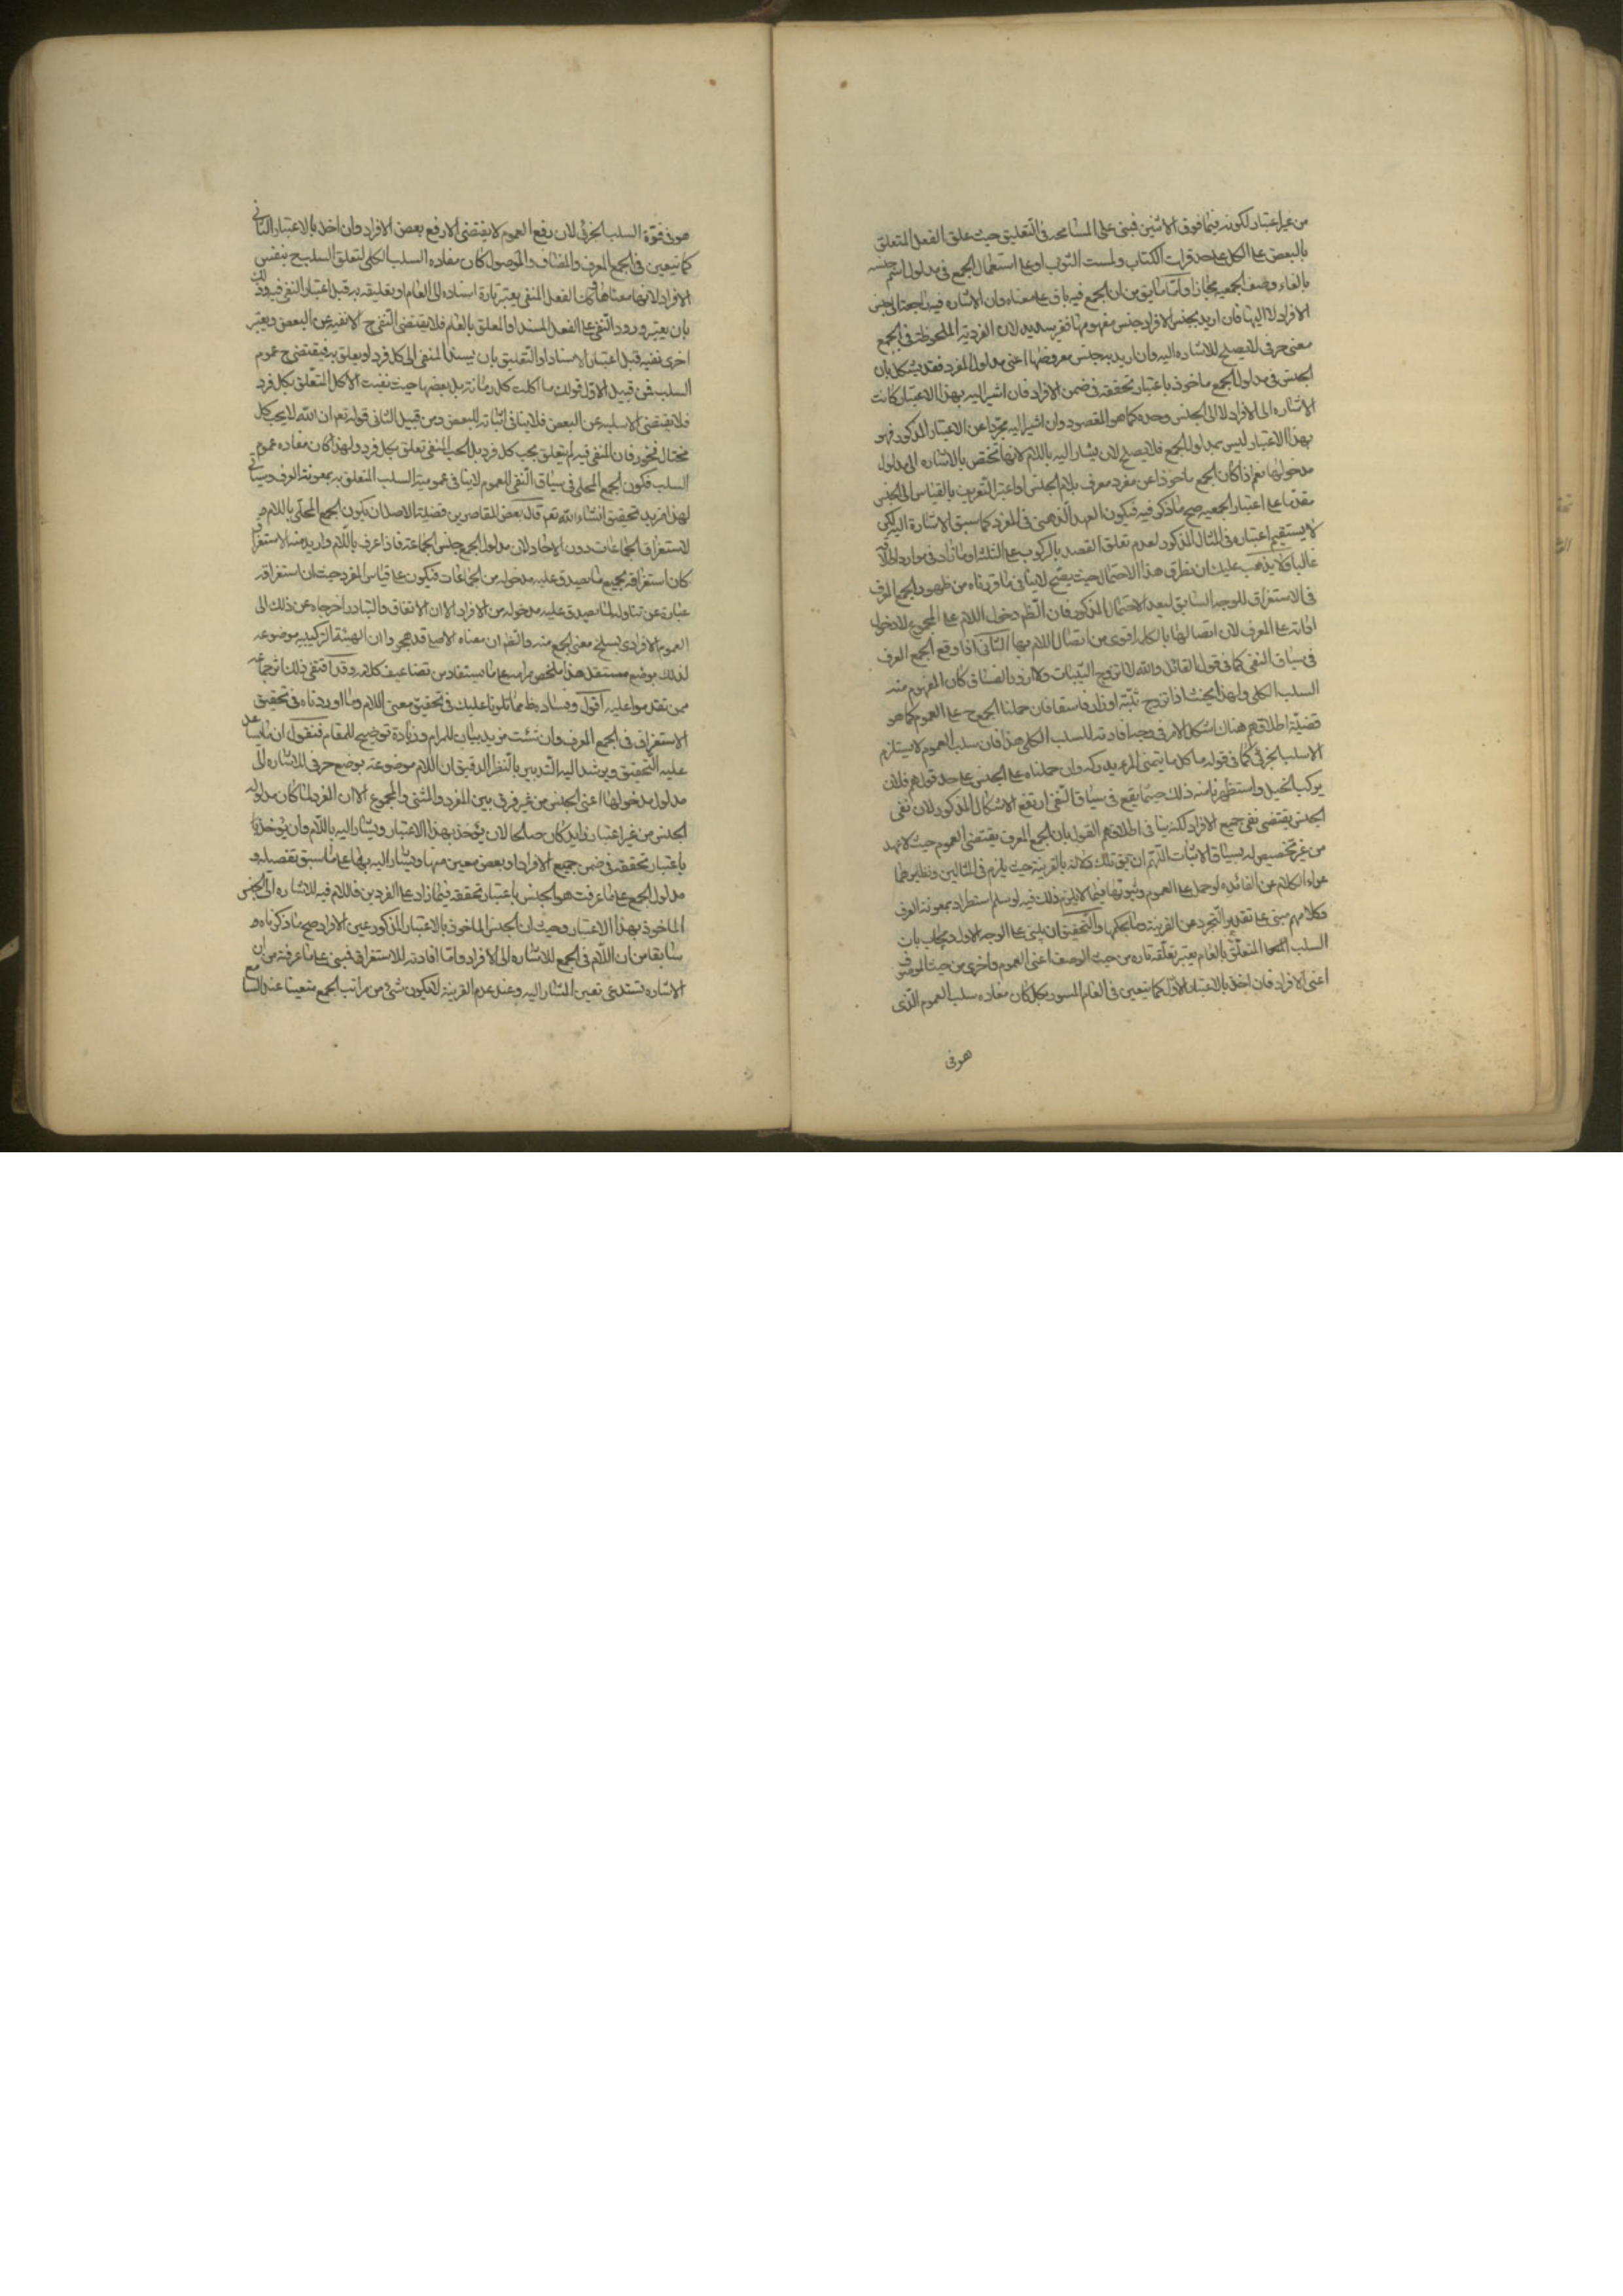 من غير اعتبار لكونه فيما فوق الاثنين فبنى على المسامحة فى التعليق حيث علق الفعل المتعلق
بالبعض على الكل على حد قرات الكتاب ولمست الثوب او على استعمال الجمع فى مدلول اسم جنسه
بالغاء وصف الجمعيه مجازا وا من ان الجمع فيه باق على معناه وان الاشاره فيه راجعة الى جنس
الافراد لا اليها فان اريد بجنس الافراد جنس مفهومها فغير سديد لان الفردية الملحوظة فى الجمع
معنى حرفى لا يصلح للاشاره اليه وان اريد به جنس معروضها اعنى مدلول المفرد فقد يشكل بان
الجنس فى مدلول الجمع ماخوذ باعتبار تحققه فى ضمن الافراد فان اشير اليه بهذا الاعتبار كانت
الاشاره الى الافراد لا الى الجنس وحده كما هو المقصود وان اشير اليه مجردا عن الاعتبار المذكور فهو
بهذا الاعتبار ليس مدلول الجمع فلا يصلح لان يشار اليه باللام لانها تختص بالاشاره الى مدلول
مدخولها نعم اذا كان الجمع ماخوذا عن مفرد معرف بلام الجنس او اعتبر التعريف بالقياس الى الجنس
مقدما على اعتبار الجمعيه صح ما ذكر فيه فيكون العهد الذهنى فى المفرد كما سبق الاشارة اليه لكن
لا يستقيم اعتباره فى المثال المذكور لعدم تعلق القصد بالركوب على الثلثه وما زاد فى موارد اطلاقه
غالبا ولا يذهب عليك ان تطرق هذا الاحتمال حيث يصح لا ينافى ما قررناه من ظهور الجمع المعرف
فى الاستغراق للوجه السابق لبعد الاحتمال المذكور فان الظم دخول اللام على المجموع لا دخول
اداته على المعرف لان اتصالها بالكلمه اقوى من اتصال اللام بها الثانى اذا وقع الجمع المعرف
فى سياق النفى كما فى قول القائل والله لا اتزوج الثيبات ولا ازور الفساق كان المفهوم منه
السلب الكلى ولهذا يحنث اذا تزوج ثيّبة او زار فاسقا فان حملنا الجمع ح على العموم كما هو
قضيّة اطلاقهم هناك اشكل الامر فى وجه افادته للسلب الكلى هذا فان سلب العموم لا يستلزم
الا سلب الجزئى كما فى قوله ما كل ما يتمنى المرء يدركه وان حملناه على الجنس على حد قولهم فلان
يركب الخيل واستظهرنا منه ذلك حيثما يقع فى سياق النفى ارتفع الاشكال المذكور لان نفى
الجنس يقتضى نفى جميع الافراد لكنه ينافى اطلاقهم القول بان الجمع المعرف يقتضى العموم حيث لا عهد
من غير تخصيص له بسياق الاثبات اللهم ان يق تلك دلالة بالقرينة حيث يلزم فى المثالين ونظايرهما
عراء الكلام عن الفائده لو حمل على العموم وثبوتها فيما لا يلزم ذلك فيه لو سلم استطراد بمعونة العرف
وكلامهم مبنى على تقدير التجرد عن القرينة وما بحكمها والتحقيق ان يبنى على الوجه الاول ويجاب بان
السلب المتعلق بالعام يعتبر تعلقه تاره من حيث الوصف اعنى العموم واخرى من حيث الموصوف
اعنى الافراد فان اخذ بالاعتبار الاول كما يتعين فى العام المسور بكل كان مفاده سلب العموم الذى
هو فى
هو فى قوّة السلب الجزئى لان رفع العموم لا يقتضى الا رفع بعض الافراد وان اخذ بالاعتبار الثانى
كما يتعين فى الجمع المعرف والمضاف والموصول كان مفاده السلب الكلى لتعلق السلب ح بنفس
الافراد لانها معناها فى الفعل المنفى يعتبر تارة اسناده الى العام او تعليقه به قبل اعتبار النفى فيه وذلك
بان يعتبر ورود النفى على الفعل المسند او المعلق بالعام فلا يقتضى النفى ح الا نفيه عن البعض ويعتبر
اخرى نفيه قبل اعتبار الاسناد او التعليق بان يسند المنفى الى كل فرد او يعلق به فيقتضى ح عموم
السلب فمن قبيل الاول قولك ما اكلت كل رمانة بل بعضها حيث نفيت الاكل المتعلق بكل فرد
فلا يقتضى الا سلبه عن البعض فلا ينافى اثباته للبعض ومن قبيل الثانى قوله تعم ان الله لا يحب كل
مختال فخور فان المنفى فيه لم يتعلق بحب كل فرد بل الحب المنفى تعلق بكل فرد ولهذا كان مفاده عموم
السلب فكون الجمع المحلى فى سياق النفى للعموم لا ينافى عمومية السلب المتعلق به بمعونة العرف وسياتى
لهذا مزيد تحقيق انشاء الله نعم قال بعض المعاصرين قضية الاصل ان يكون الجمع المحلّى باللام
لاستغراق الجماعات دون الاحاد لان مدلول الجمع جنس الجماعة فاذا عرف باللام واريد منه الاستغراق
كان استغراقه لجميع ما يصدق عليه مدخوله من الجماعات فيكون على قياس المفرد حيث ان استغراقه
عبارة عن تناوله لما يصدق عليه مدخوله من الافراد الا ان الاتفاق والتبادر اخرجاه عن ذلك الى
العموم الافرادى بسلخ معنى الجمع منه والظم ان معناه الاصلى قد هجر وان الهيئة التركيبيه موضوعه
لذلك بوضع مستقل هذا ملخص مرامه على ما يستفاد من تضاعيف كلامه وقد اقتفى ذلك اثر جماعة
ممن تقدموا عليه اقول وفساده ظم مما تلونا عليك فى تحقيق معنى اللام وما اوردناه فى تحقيق
الاستغراق فى الجمع المعرف وان شئت مزيد بيان للمرام وزيادة توضيح للمقام فنقول ان ما يساعد
عليه التحقيق ويرشد اليه التدبير بالنظر الدقيق ان اللام موضوعة بوضع حرفى للاشاره الى
مدلول مدخولها اعنى الجنس من غير فرق بين المفرد والمثنى والمجموع الا ان المفرد لما كان مدلوله
الجنس من غير اعتبار زايد كان صالحا لان يؤخذ بهذا الاعتبار ويشار اليه باللام وان يؤخذ
باعتبار تحققه فى ضمن جميع الافراد او بعض معين منها ويشار اليه بها على ما سبق تفصيله و
مدلول الجمع على ما عرفت هو الجنس باعتبار تحققه فيما زاد على الفردين فاللام فيه للاشاره الى الجنس
الماخوذ بهذا الاعتبار وحيث ان الجنس الماخوذ بالاعتبار المذكور عين الافراد صح ما ذكرناه
سابقا من ان اللام فى الجمع للاشاره الى الافراد واما افادته للاستغراق فمبنى على ما عرفت من ان
الاشاره تستدعى تعين المشار اليه وعند عدم القرينة لا يكون شئ من مراتب الجمع متعينا عند السامع